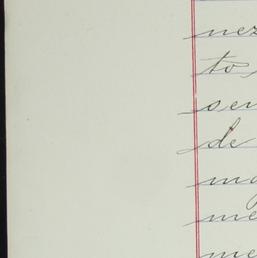 nez
to
sen
de
me
me